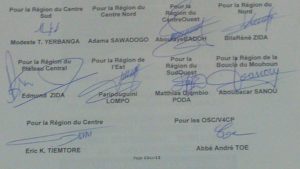 Pour la Région du Centre Pour la Région du Pour la Région du Pour la Région du
Sud Centre Nord Centre Ouest Nord
Modeste T. YERBANGA Adama SAWADOGO BilaRéné ZIDA
Pour la Région du Pour la Région de Pour la Région du Pour la Région de la
Plateau Central l'Est SudOuest Boucle du Mouhoun
Edmond ZIDA Paripouguini Matthias Aboubacar SANOU
LOMPO PODA
Pour la Région du Centre Pour les OSC/V4CP
Eric K. TIEMTORE Abbé André TOE